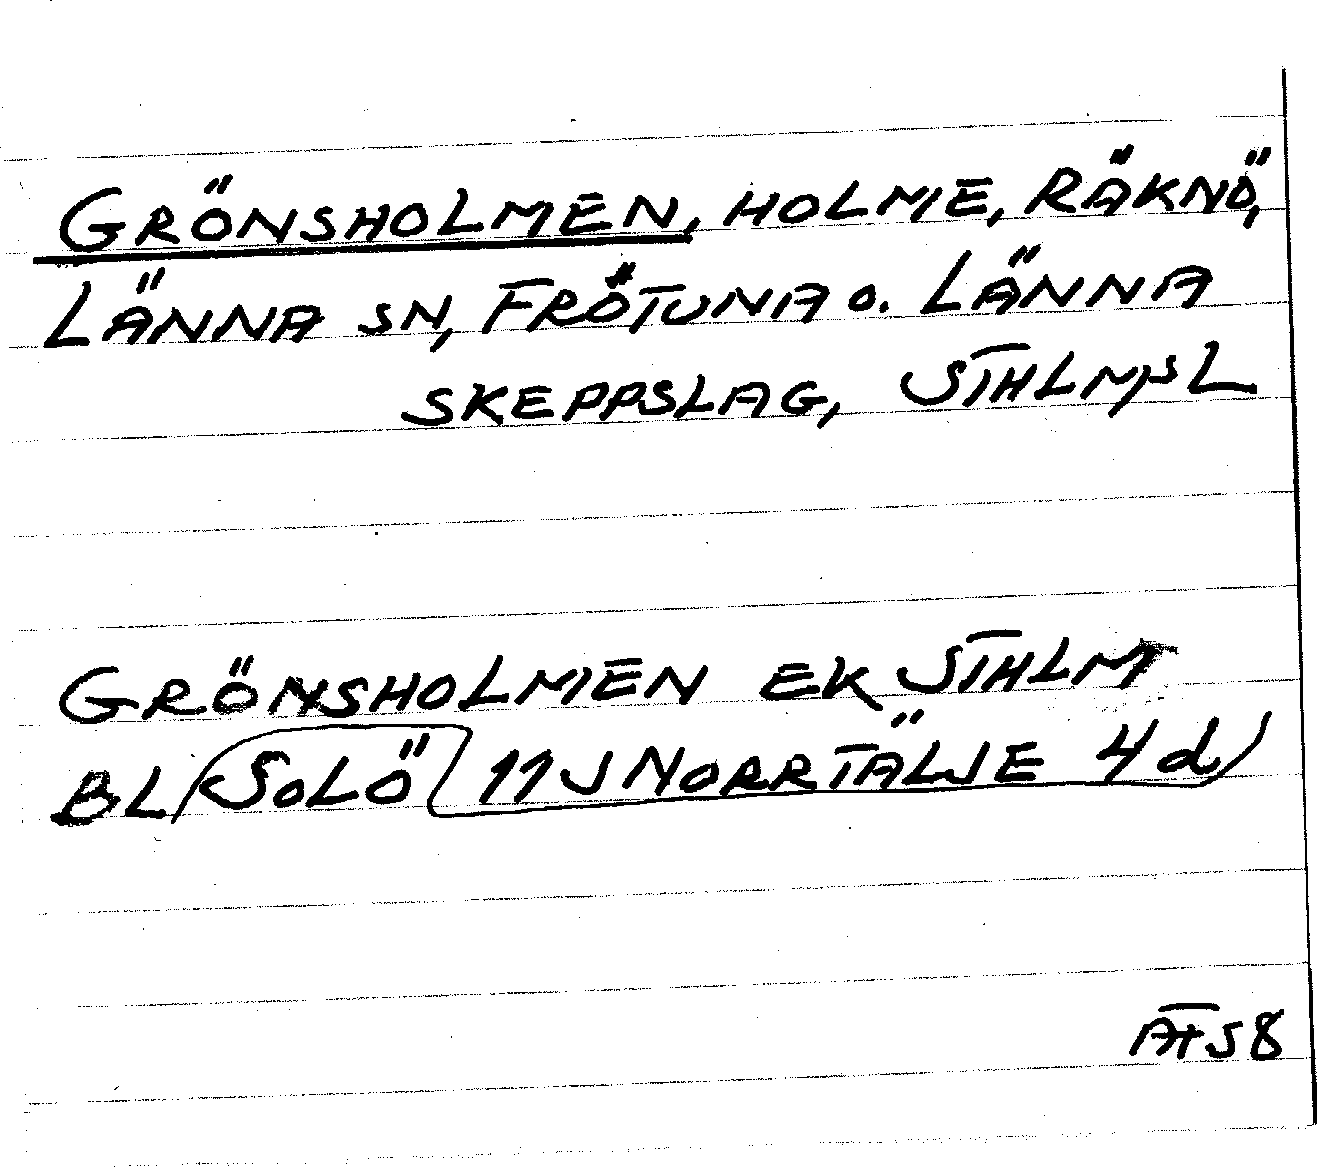 GRÖNSHOLMEN, HOLME, RÄKNÖ,
LÄNNA SN, FRÖTUNA O. LÄNNA
SKEPPSLAG, STHLMS L
GRÖNSHOLMEN EK STHLM
BL (SOLÖ 11J NORRTÄLJE 4d)